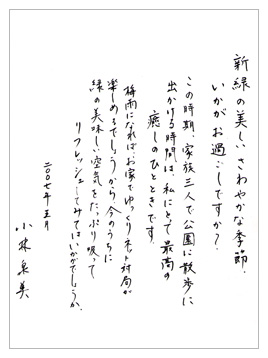 新緑の美しいさわやかな季節、
いかがお過ごしですか?
この時期、家族三人で公園に散歩に
出かける時間は、私にとって最高の
癒しのひとときです。
梅雨になればお家でゆっくりネット対局が
楽しめるでしょうから今のうちに
緑の美味しい空気をたっぷり吸って
リフレッシュしてみてはいかがでしょうか。
二〇〇七年五月
小林泉美